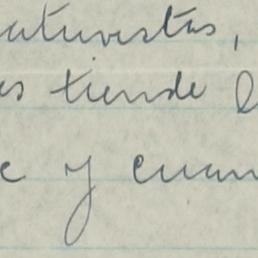 ativistas,
es tiende l
e y cuan